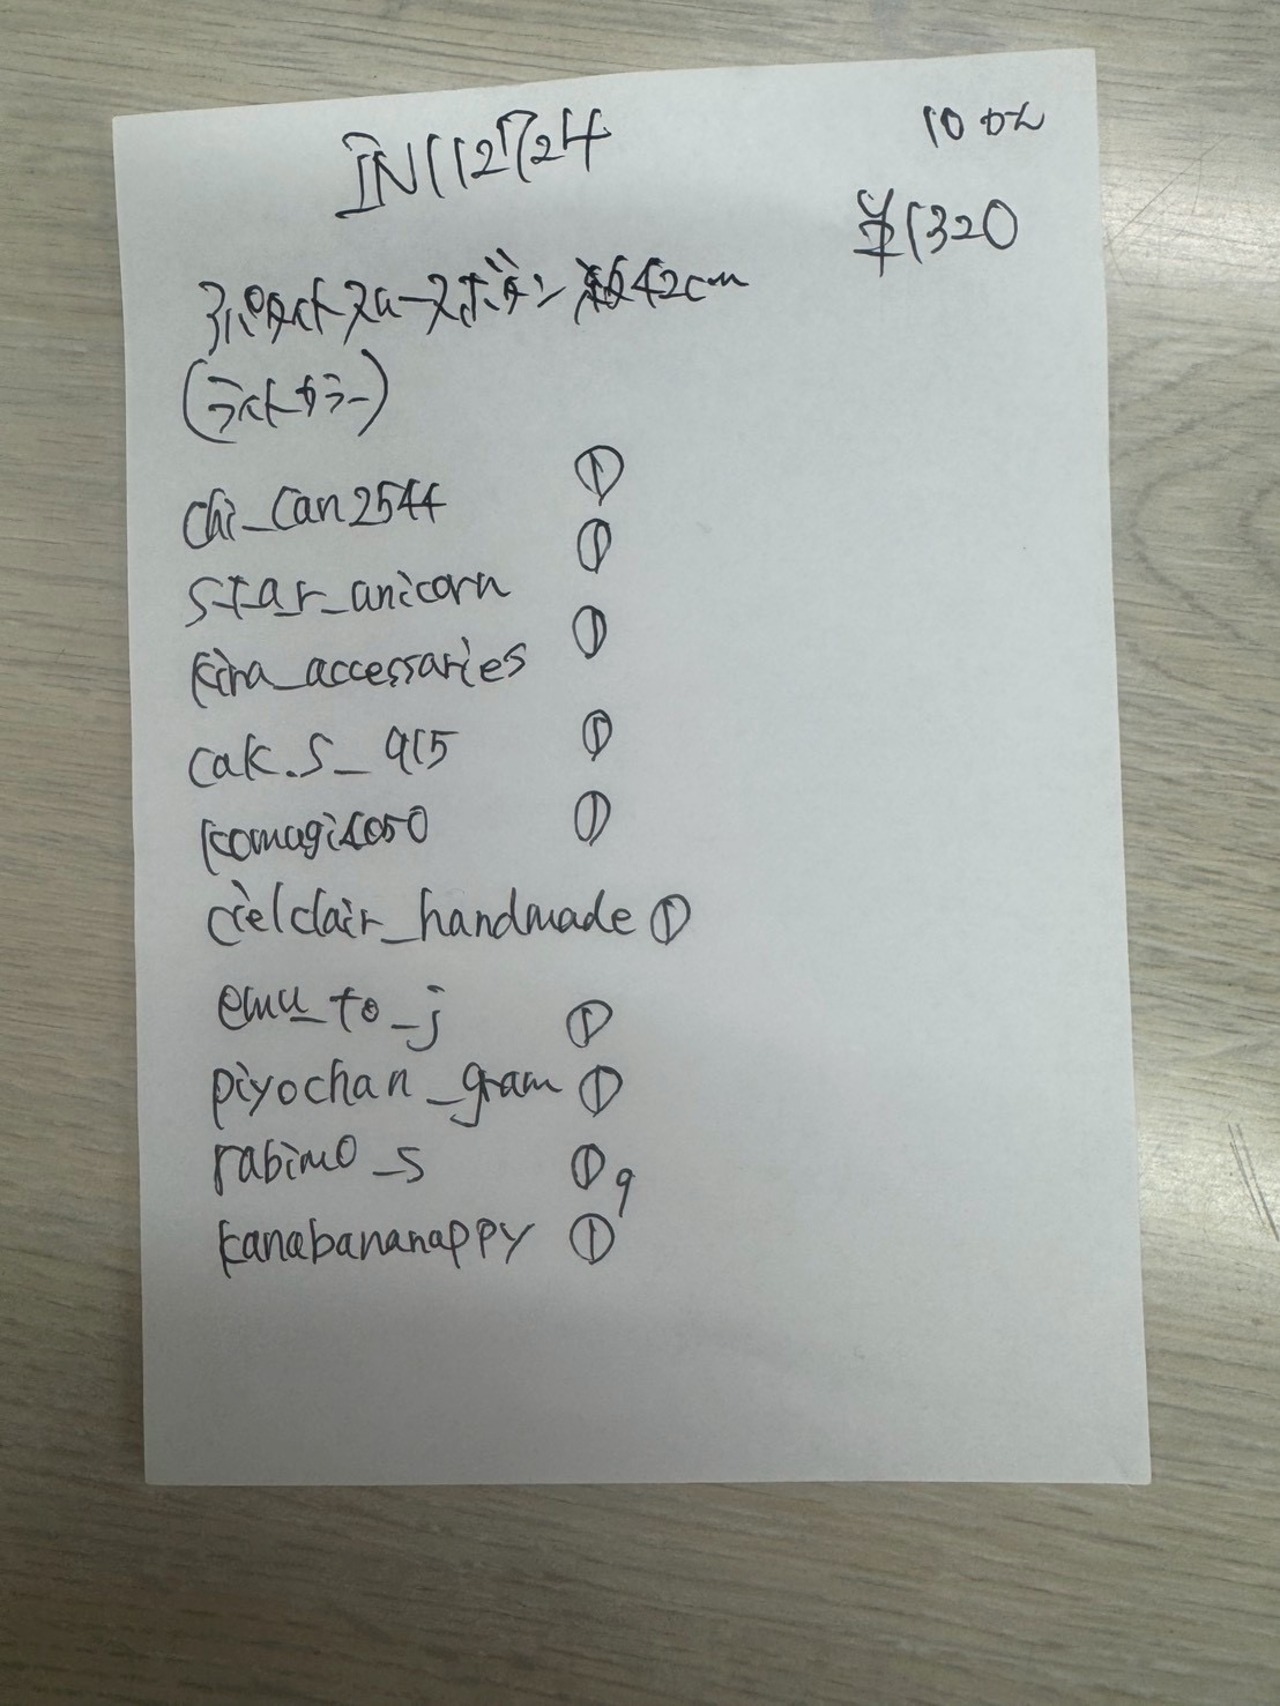 IN112724
10のみ
¥1320
スパンコールスターズボタン 約42cm
(ライトカラー)
chi_can2544 ①
star_anicorn ①
kira_accessaries ①
cak.s_915 ①
komagi1050 ①
cielclair_handmade ①
emu_to_j ①
piyochan_gram ①
rabimo_s ① 9
kanabananappy ①